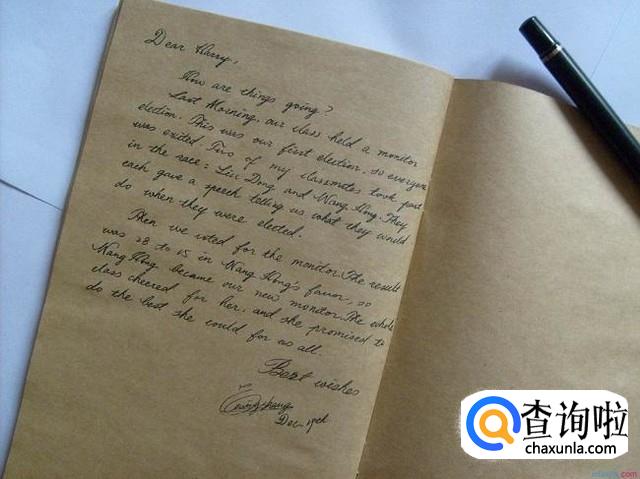 Dear Harry,
How are things going?
Last Morning, our class held a monitor
election. This was our first election, so everyone
was exited. Two of my classmates took part
in the race: Liu Dong and Wang Hong. They
each gave a speech telling us what they would
do when they were elected.
Then we voted for the monitor. The result
was 28 to 15 in Wang Hong's favor, so
Wang Hong became our new monitor. The whole
class cheered for her, and she promised to
do the best she could for us all.
Best wishes
Dec. 19th
查询啦
chaxunla.com